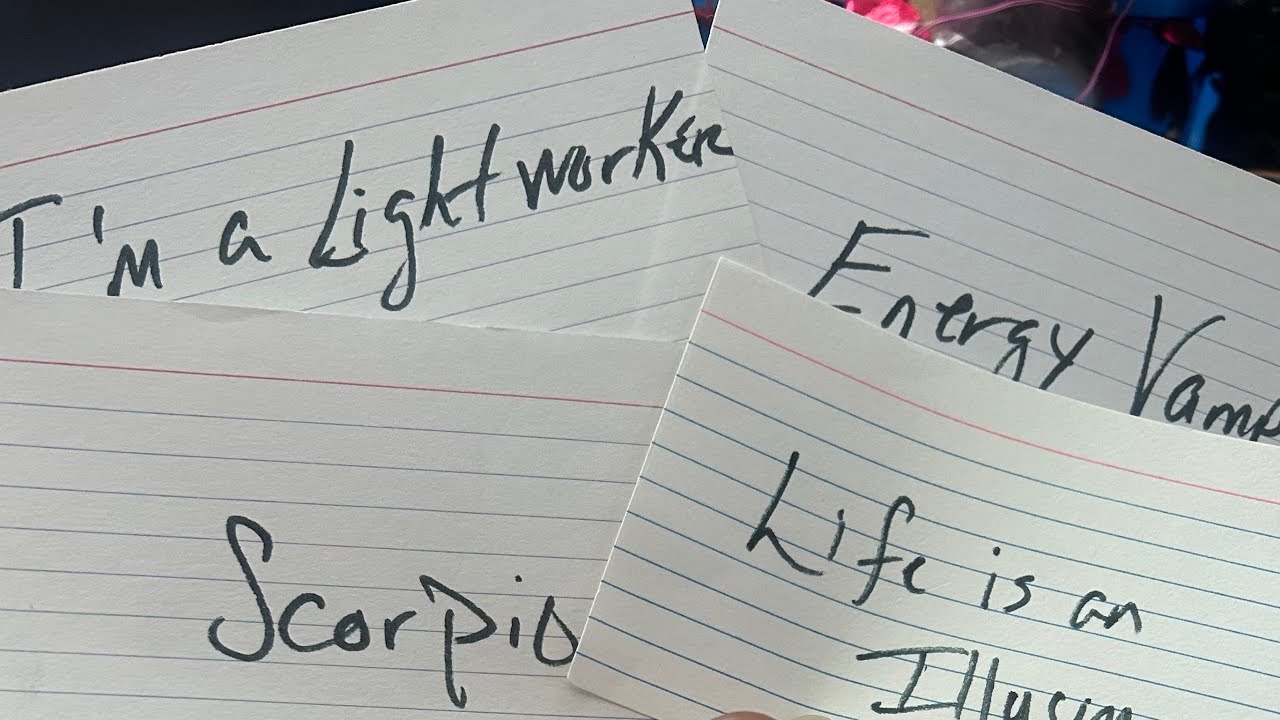 I'm a Lightworker
Energy Vamp
Scorpio
Life is an
Illusion